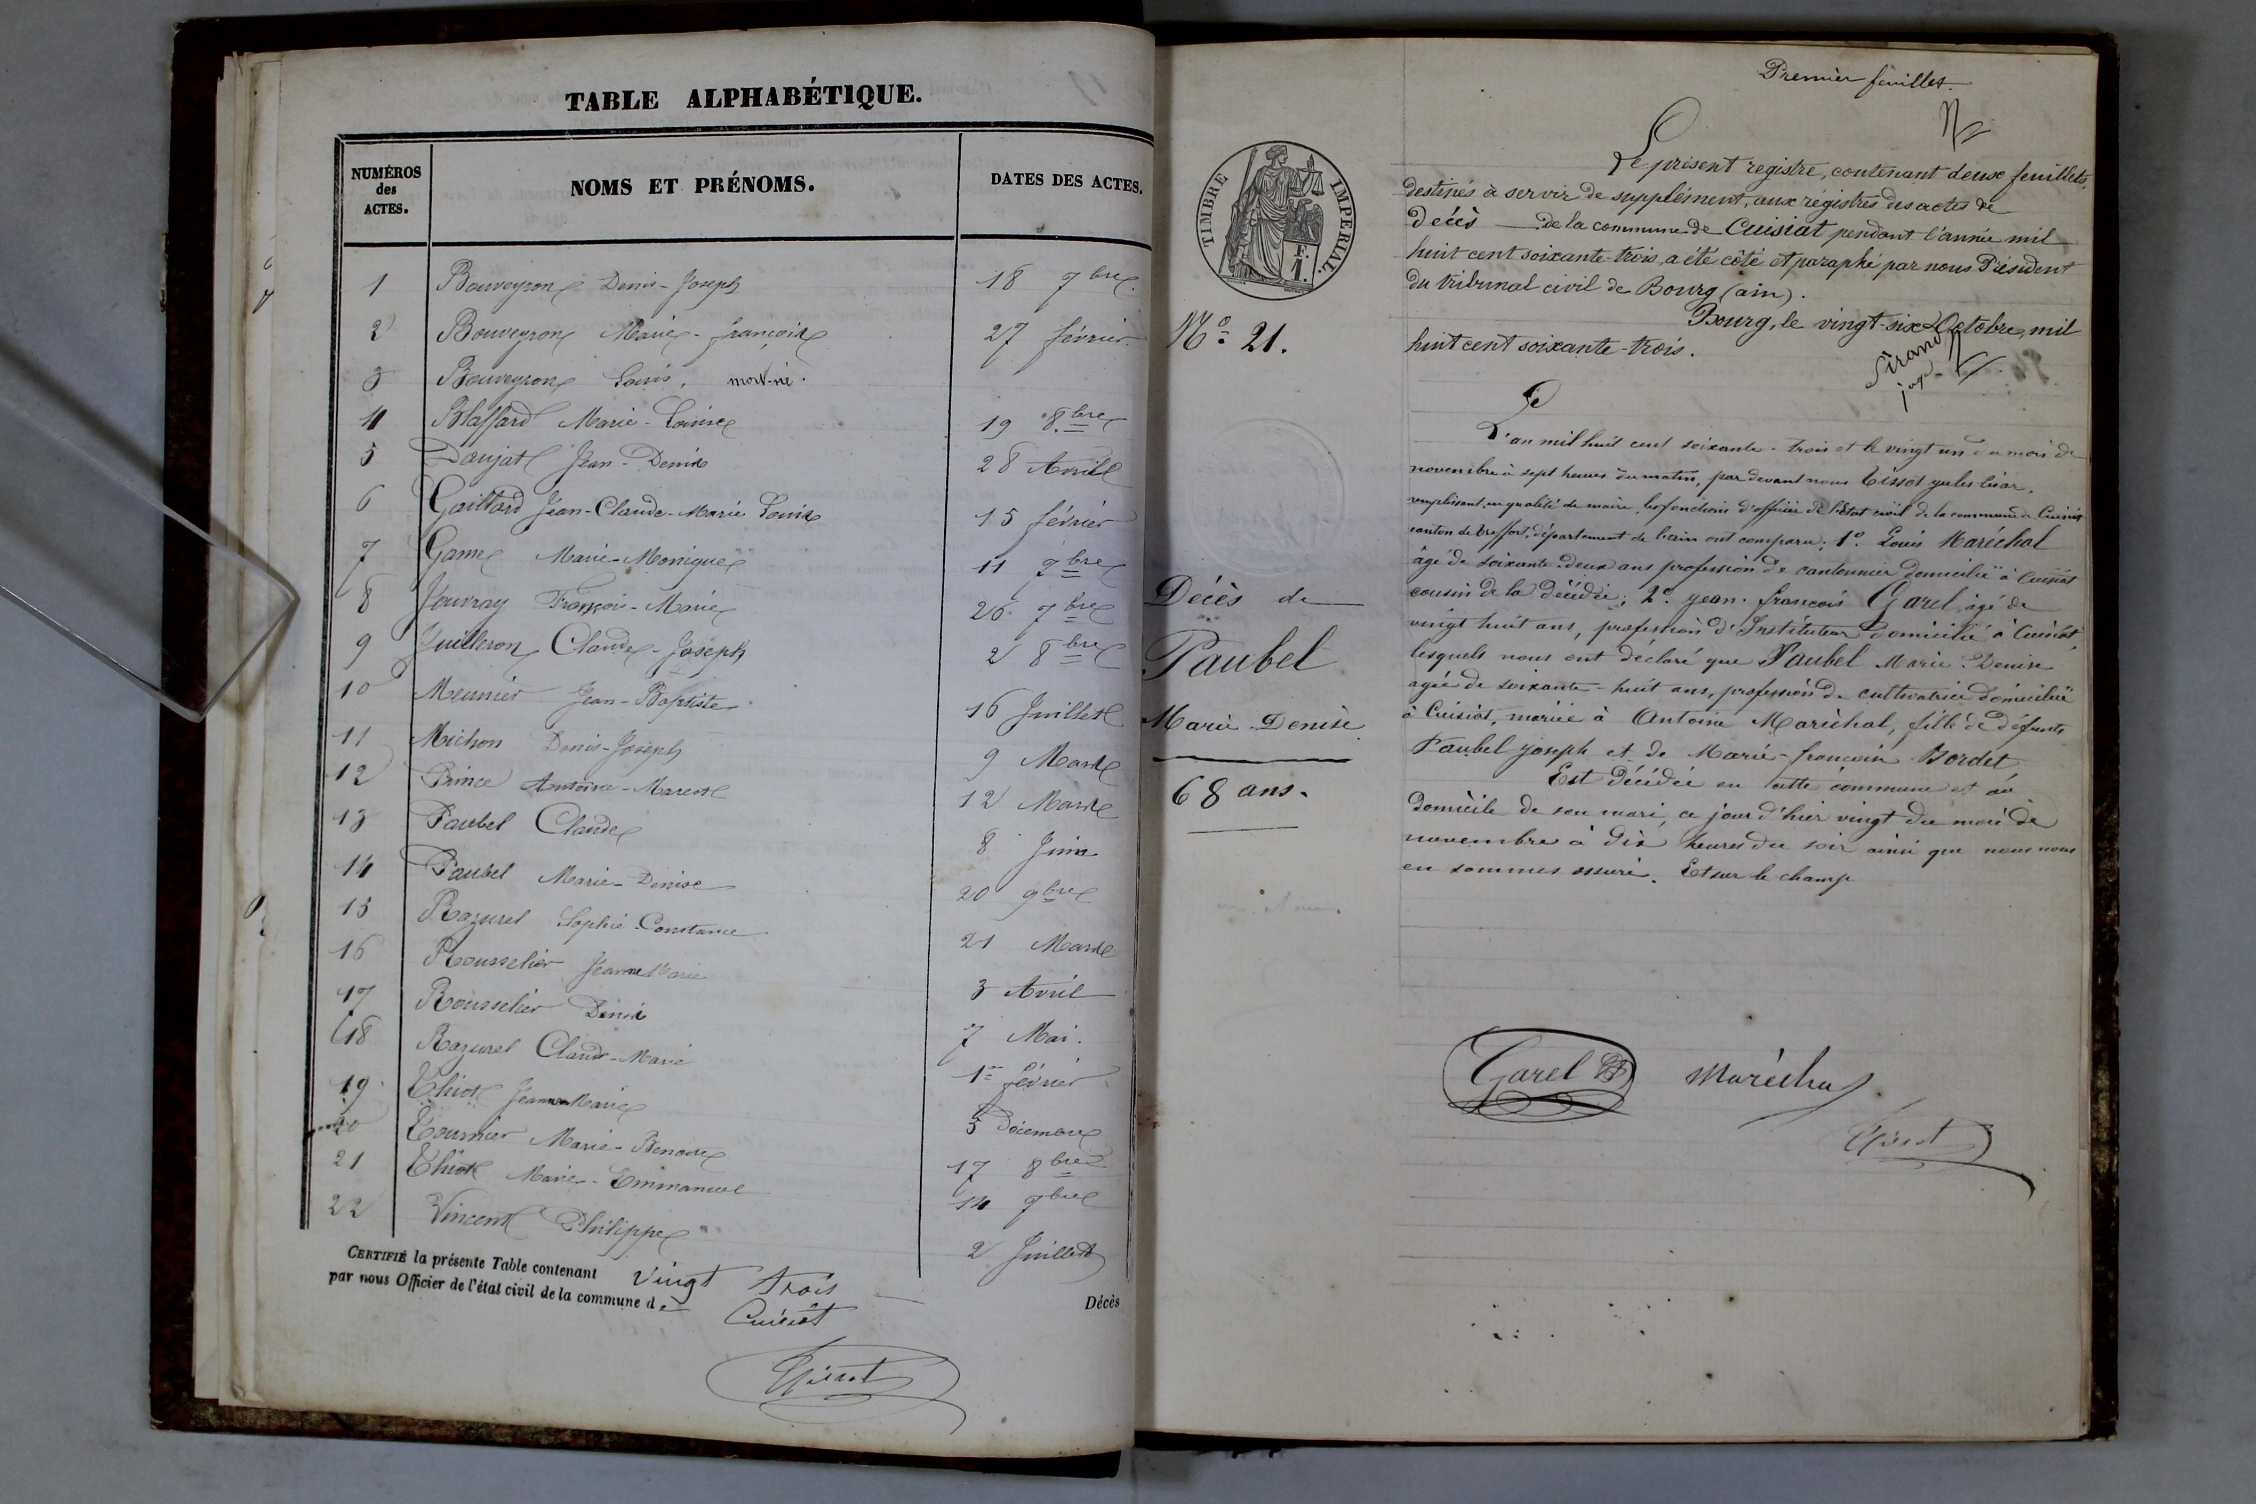 TABLE ALPHABÉTIQUE.
NUMÉROS des ACTES. NOMS ET PRÉNOMS. DATES DES ACTES.
1 Bouveyron Denis-Joseph 18 7bre
2 Bouveyron Marie-françoise 27 février
3 Bouveyron Louis, mort-né.
4 Blaffard Marie-Louise 19 8bre
5 Daujat Jean-Denis 28 Avril
6 Gaillard Jean-Claude-Marie Louis 15 février
7 Game Marie-Monique 11 9bre
8 Jouvray François-Marie 26 7bre
9 Juilleron Claude-Joseph 2 8bre
10 Meunier Jean-Baptiste 16 Juillet
11 Michon Denis-Joseph 9 Mars
12 Prince Antoine-Marcel 12 Mars
13 Paubel Claude 8 Juin
14 Paubel Marie-Denise 20 9bre
15 Razurel Sophie-Constance 21 Mars
16 Rousselier Jeanne Marie 3 Avril
17 Rousselier Denis 7 Mai.
18 Razurel Claude-Marie 1er février
19 Jeanne Marie 5 Décembre
20 Tournier Marie- 17 8bre
21 Marie-Emmanuel 14 9bre
22 Vincent Philippe 2 Juillet
CERTIFIÉ la présente Table contenant vingt trois
par nous Officier de l'état civil de la commune de Cuisiat
Décès
Premier feuillet.
TIMBRE IMPÉRIAL.
1 F.
Le présent registre, contenant deux feuillets,
destinés à servir de supplément, aux régistres des actes de
décès de la commune de Cuisiat pendant l'année mil
huit cent soixante-trois, a été côté et paraphé par nous Président
du tribunal civil de Bourg (ain).
Bourg, le vingt-six Octobre, mil
huit cent soixante-trois.
Sirand
juge
No 21.
Décès de
Paubel
Marie Denise
68 ans.
L'an mil huit cent soixante-trois et le vingt un du mois de
novembre à sept heures du matin, par devant nous Tissot jules César,
remplissant en qualité de maire, les fonctions d'officier de l'état civil de la commune de Cuisiat
canton de treffort, département de l'ain ont comparu; 1o. Louis Maréchal
âgé de soixante-deux ans profession de cantonnier domicilié à Cuisiat
cousin de la décédée; 2o. jean-françois Garel, agé de
vingt huit ans, profession d'Instituteur domicilié à Cuisiat,
lesquels nous ont déclaré que Paubel Marie Denise
agée de soixante-huit ans, profession de cultivatrice domiciliée
à Cuisiat, mariée à Antoine Maréchal, fille de défunts
Paubel joseph et de Marie-françoise Bordet
Est décédée en cette commune et au
domicile de son mari, ce jour d'hier vingt du mois de
novembre à dix heures du soir ainsi que nous nous
en sommes assuré. Et sur le champ
Garel Maréchal